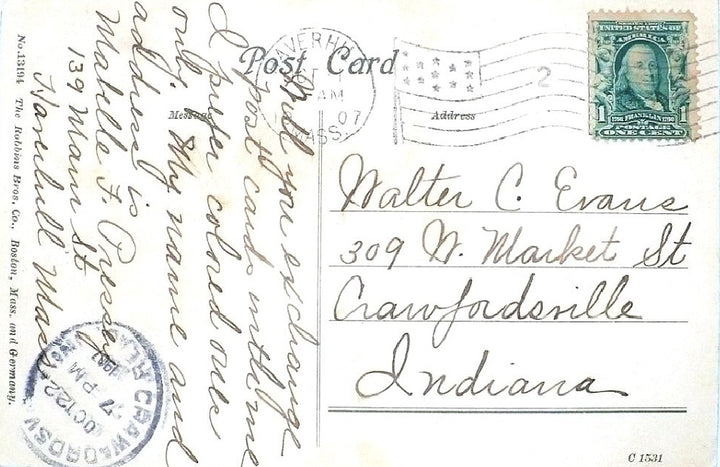 Post Card
Message
Address
HAVERHILL
AM
07
MASS.
2
SERIES 1902
UNITED STATES OF
AMERICA
1 FRANKLIN 1
POSTAGE
ONE CENT
Will you exchange
post cards with me
I prefer colored ones
only. My name and
address is
Mabelle F. Pressey
139 Main St.
Haverhill Mass
Walter C. Evans
309 W. Market St
Crawfordsville
Indiana
CRAWFORDSV
OCT 22
7 PM
1907
REC
No. 13194 The Robbins Bros. Co., Boston, Mass. and Germany.
C 1531